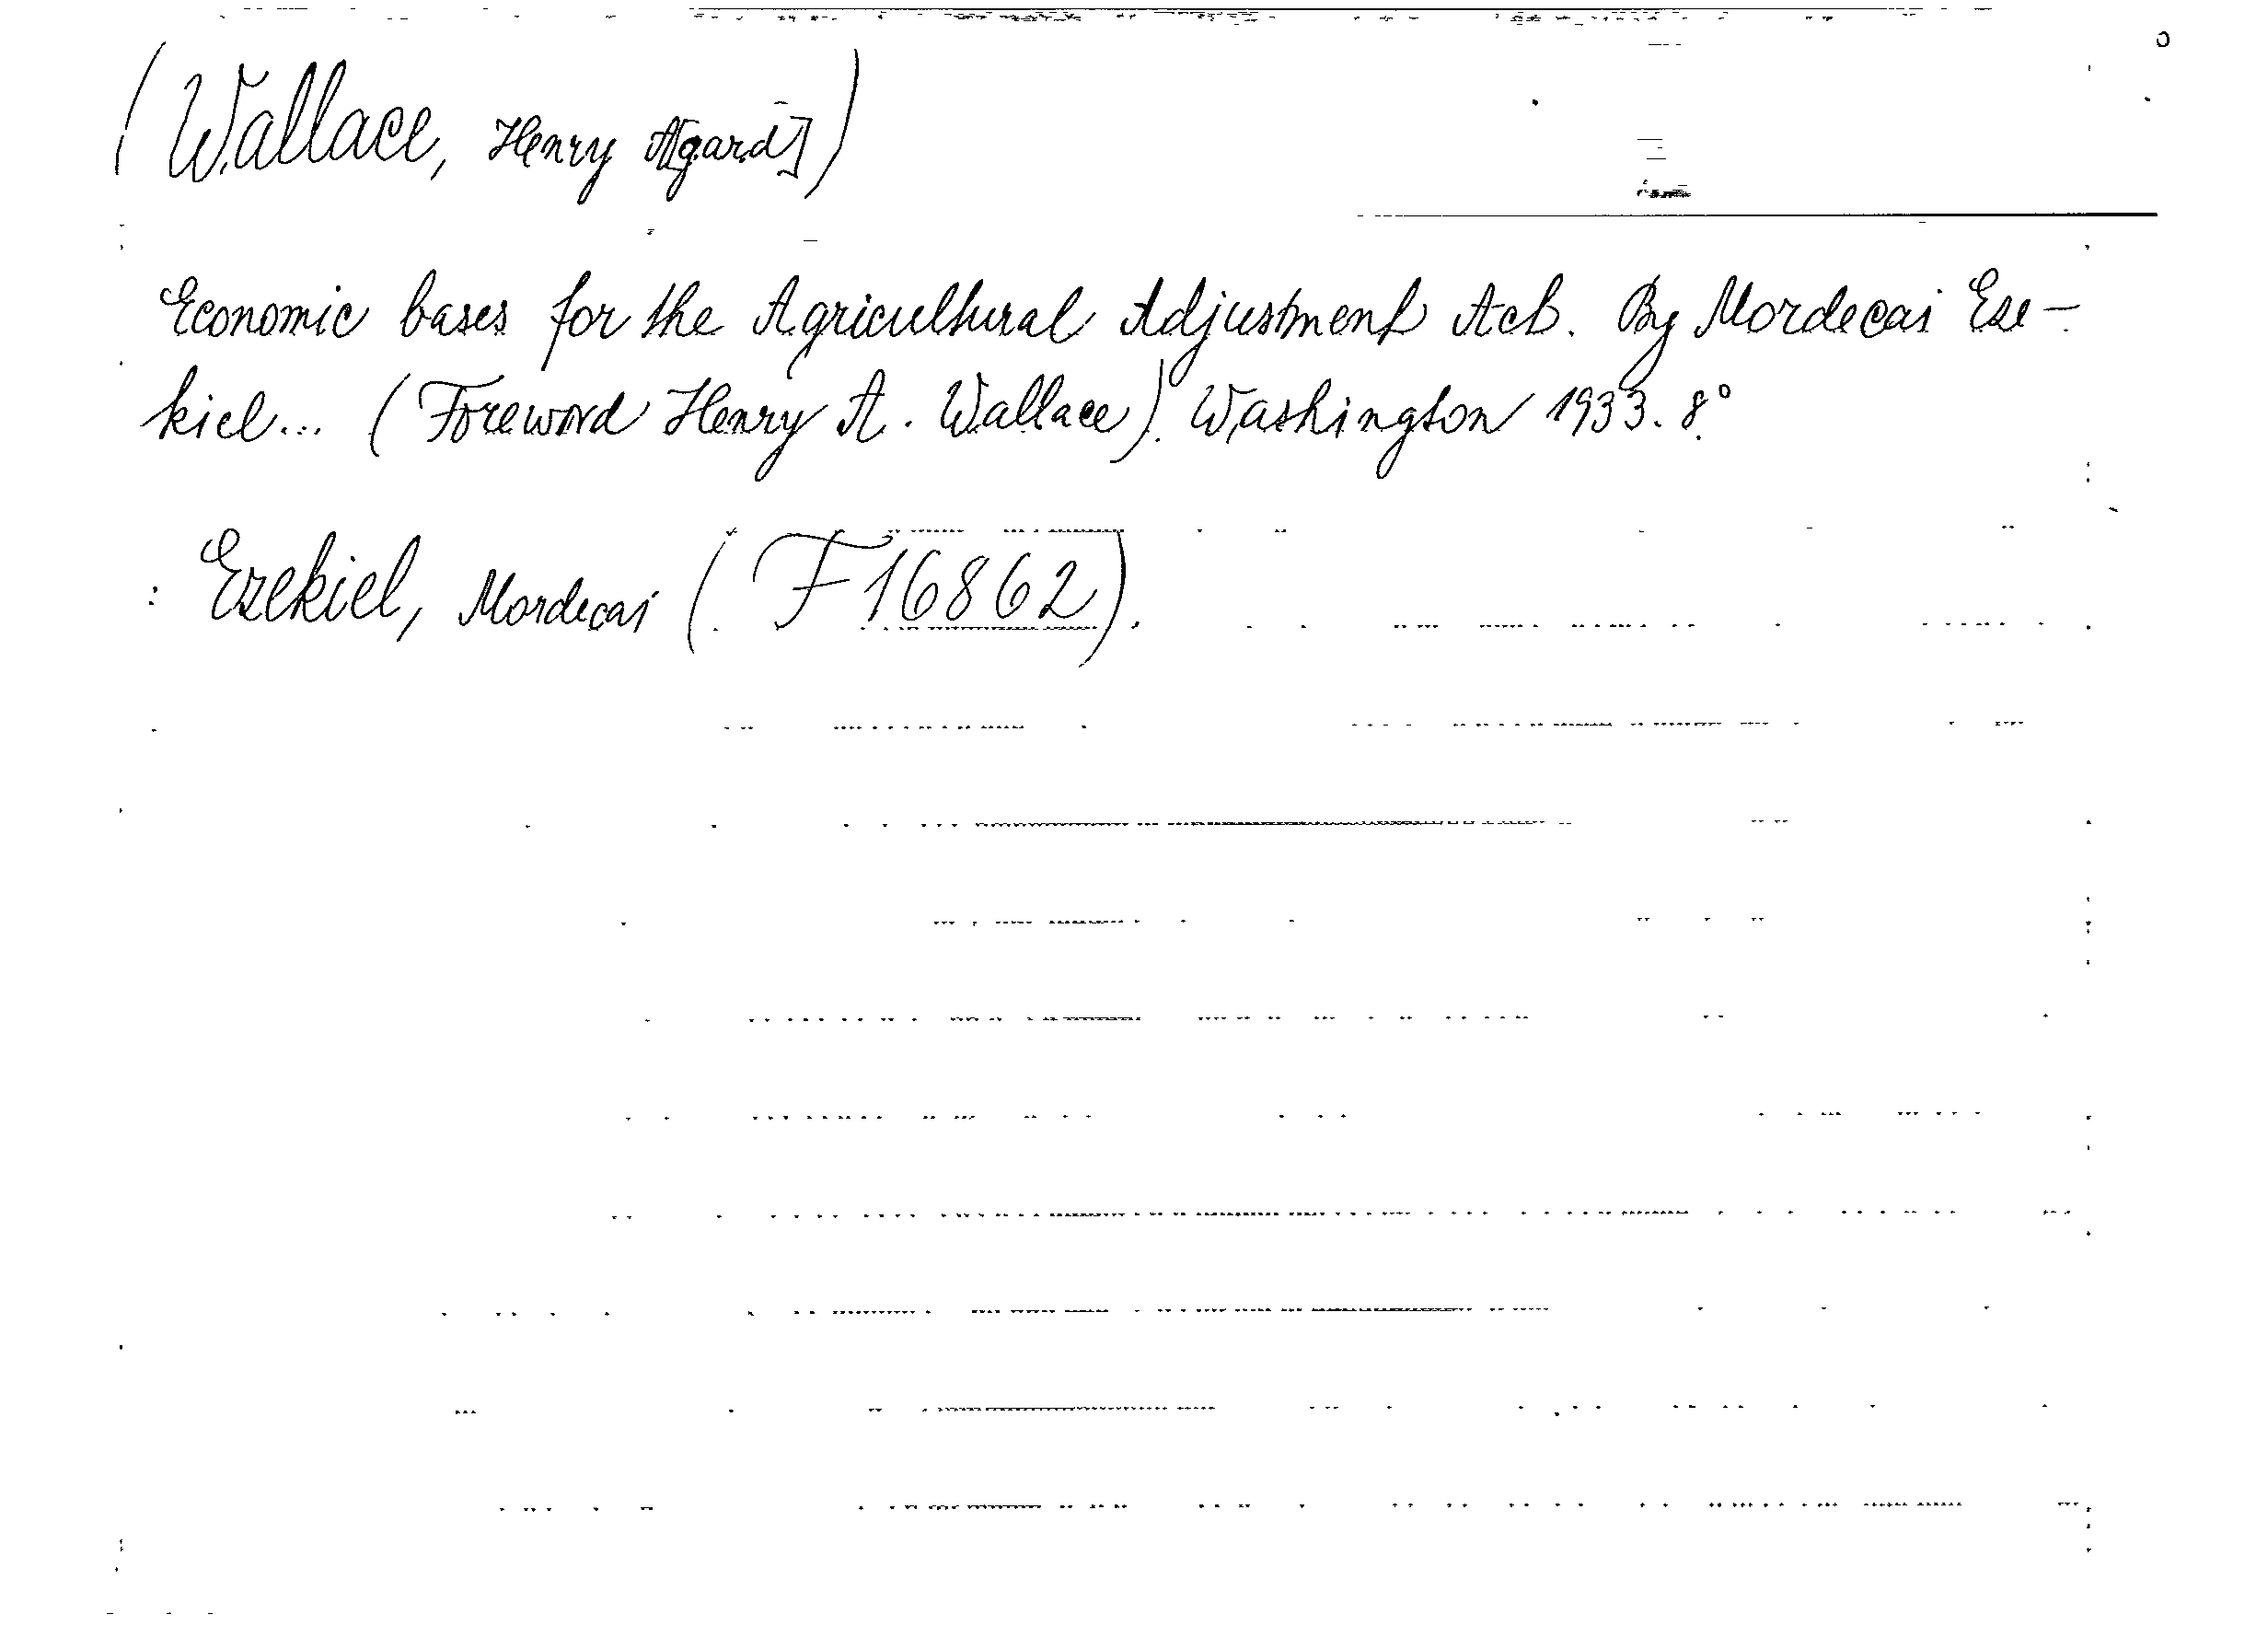 (Wallace, Henry A[gard])
Economic bases for the Agricultural Adjustment Act. By Mordecai Eze-
kiel... (Foreword Henry A. Wallace). Washington 1933. 8°
Ezekiel, Mordecai (F 16862).